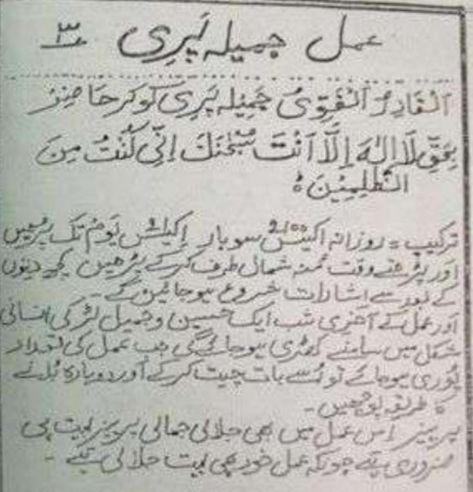 عمل جمیلہ پَرِی ۳
اَلْقَادِرُ الْقَوِیُّ جَمِیْلَہ پَرِیْ کو کر حاضِرْ
بِحَقِّ لَا اِلٰہَ اِلَّا اَنْتَ سُبْحٰنَکَ اِنِّی کُنْتُ مِنَ
الظّٰلِمِیْنَ ہ
ترکیب = روزانہ اکیس سو بار اکیس یوم تک پڑھیں
اور پڑھتے وقت منہ شمالی طرف کرکے پڑھیں کچھ دینوں
کے بعد سے اشارات شروع ہوجائیں گے۔
اور عمل کے آخری شب ایک حسین و جمیل لڑکی انسانی
شکل میں سامنے کھڑی ہوجائے گی جب عمل کی تعداد
پُوری ہوجائے تو اُسے بات چیت کرکے اور دوبارہ بُلانے
کا طریقہ پوچھیں۔
پرہیز اس عمل میں بھی جلالی جمالی پرہیز بہت ہی
ضروری ہے چونکہ عمل خود بھی بہت جلالی ہے۔